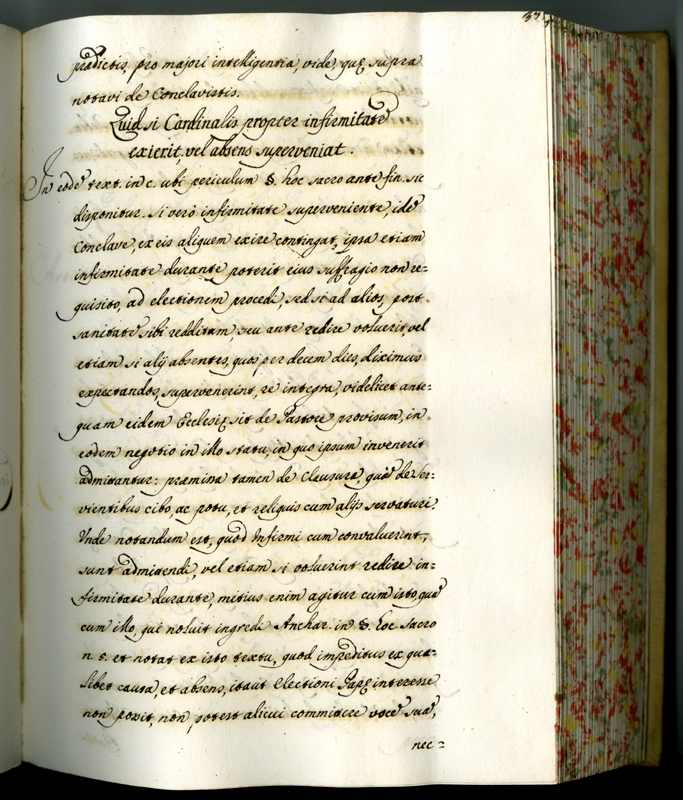 prædictis, pro majori intelligentia, vide, quę supra
notavi de Conclavistis.
Quid si Cardinalis propter infirmitatẽ
exierit, vel absens superveniat.
In eodẽ text. in c. ubi periculum §. hoc sacro ante fin. sic
disponitur. Si verò infirmitate superveniente, idẽ
Conclave, ex eis aliquem exire contingat, ipsa etiam
infirmitate durante poterit eius suffragio non re=
quisito, ad electionem procedi, sed si ad alios, post
sanitatẽ sibi redditam, seu ante redire voluerit, vel
etiam si alij absentes, quos per decem dies, diximus
expectandos, supervenerint, re integra, videlicet ante=
quam eidem Ecclesię sit de Pastore provisum, in
eodem negotio in illo statu, in quo ipsum invenerit
admitantur: præmina tamen de clausura, quã de ser=
vientibus cibo, ac potu, et reliquis cum alijs servaturi.
Unde notandum est, quod Infirmi cum convaluerint,
sunt admitendi, vel etiam si voluerint redire in=
firmitate durante, mitius enim agitur cum isto, quã
cum illo, qui noluit ingredi Anchar. in §. hoc sacro
n. 5. et notat ex isto textu, quod impeditus ex qua=
libet causa, et absens, itaut electioni Papę interesse
non possit, non potest alicui committere vocẽ suã,
nec=